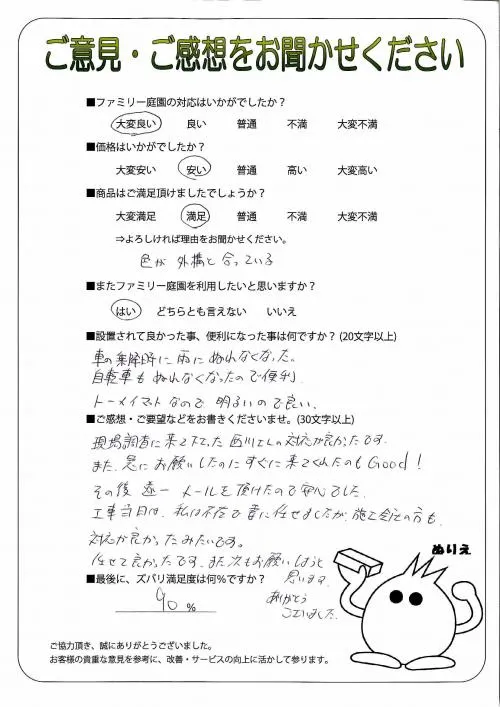 ご意見・ご感想をお聞かせください
■ファミリー庭園の対応はいかがでしたか？
大変良い 良い 普通 不満 大変不満
■価格はいかがでしたか？
大変安い 安い 普通 高い 大変高い
■商品はご満足頂けましたでしょうか？
大変満足 満足 普通 不満 大変不満
⇒よろしければ理由をお聞かせください。
色が外構と合っている
■またファミリー庭園を利用したいと思いますか？
はい どちらとも言えない いいえ
■設置されて良かった事、便利になった事は何ですか？(20文字以上)
車の乗降時に雨にぬれなくなった。
自転車もぬれなくなったので便利
トーメイマットなので明るいので良い。
■ご感想・ご要望などをお書きくださいませ。(30文字以上)
現場調査に来て下さった西川さんの対応が良かったです。
また、急にお願いしたのにすぐに来てくれたのもGood！
その後 逐一メールを頂けたので安心でした。
工事当日は、私は不在で妻に任せましたが、施工会社の方も、
対応が良かったみたいです。
任せて良かったです。また次もお願いしようと
思います。
ありがとう
ございました。
■最後に、ズバリ満足度は何％ですか？
90 %
ぬりえ
ご協力頂き、誠にありがとうございました。
お客様の貴重な意見を参考に、改善・サービスの向上に活かして参ります。